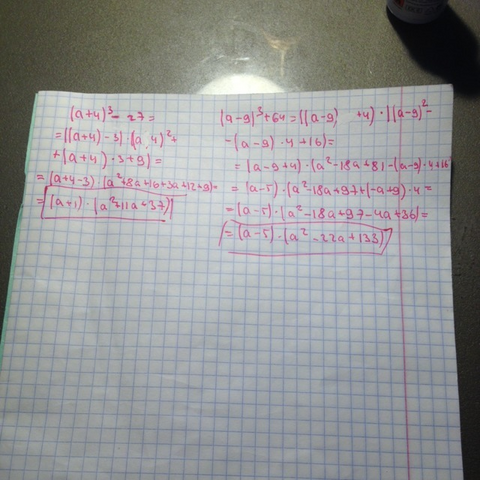 (a+4)³ - 27 =
= ((a+4)-3)·(a 4)²+
+(a+4)·3+9)=
= (a+4-3)·(a²+8a+16+3a+12+9)=
= (a+1)·(a²+11a+37)
(a-9)³+64 = ((a-9) +4)·((a-9)²-
-(a-9)·4+16)=
= (a-9+4)·(a²-18a+81-(a-9)·4+16
= (a-5)·(a²-18a+97+(-a+9)·4=
= (a-5)·(a²-18a+97-4a+36)=
= (a-5)·(a²-22a+133)